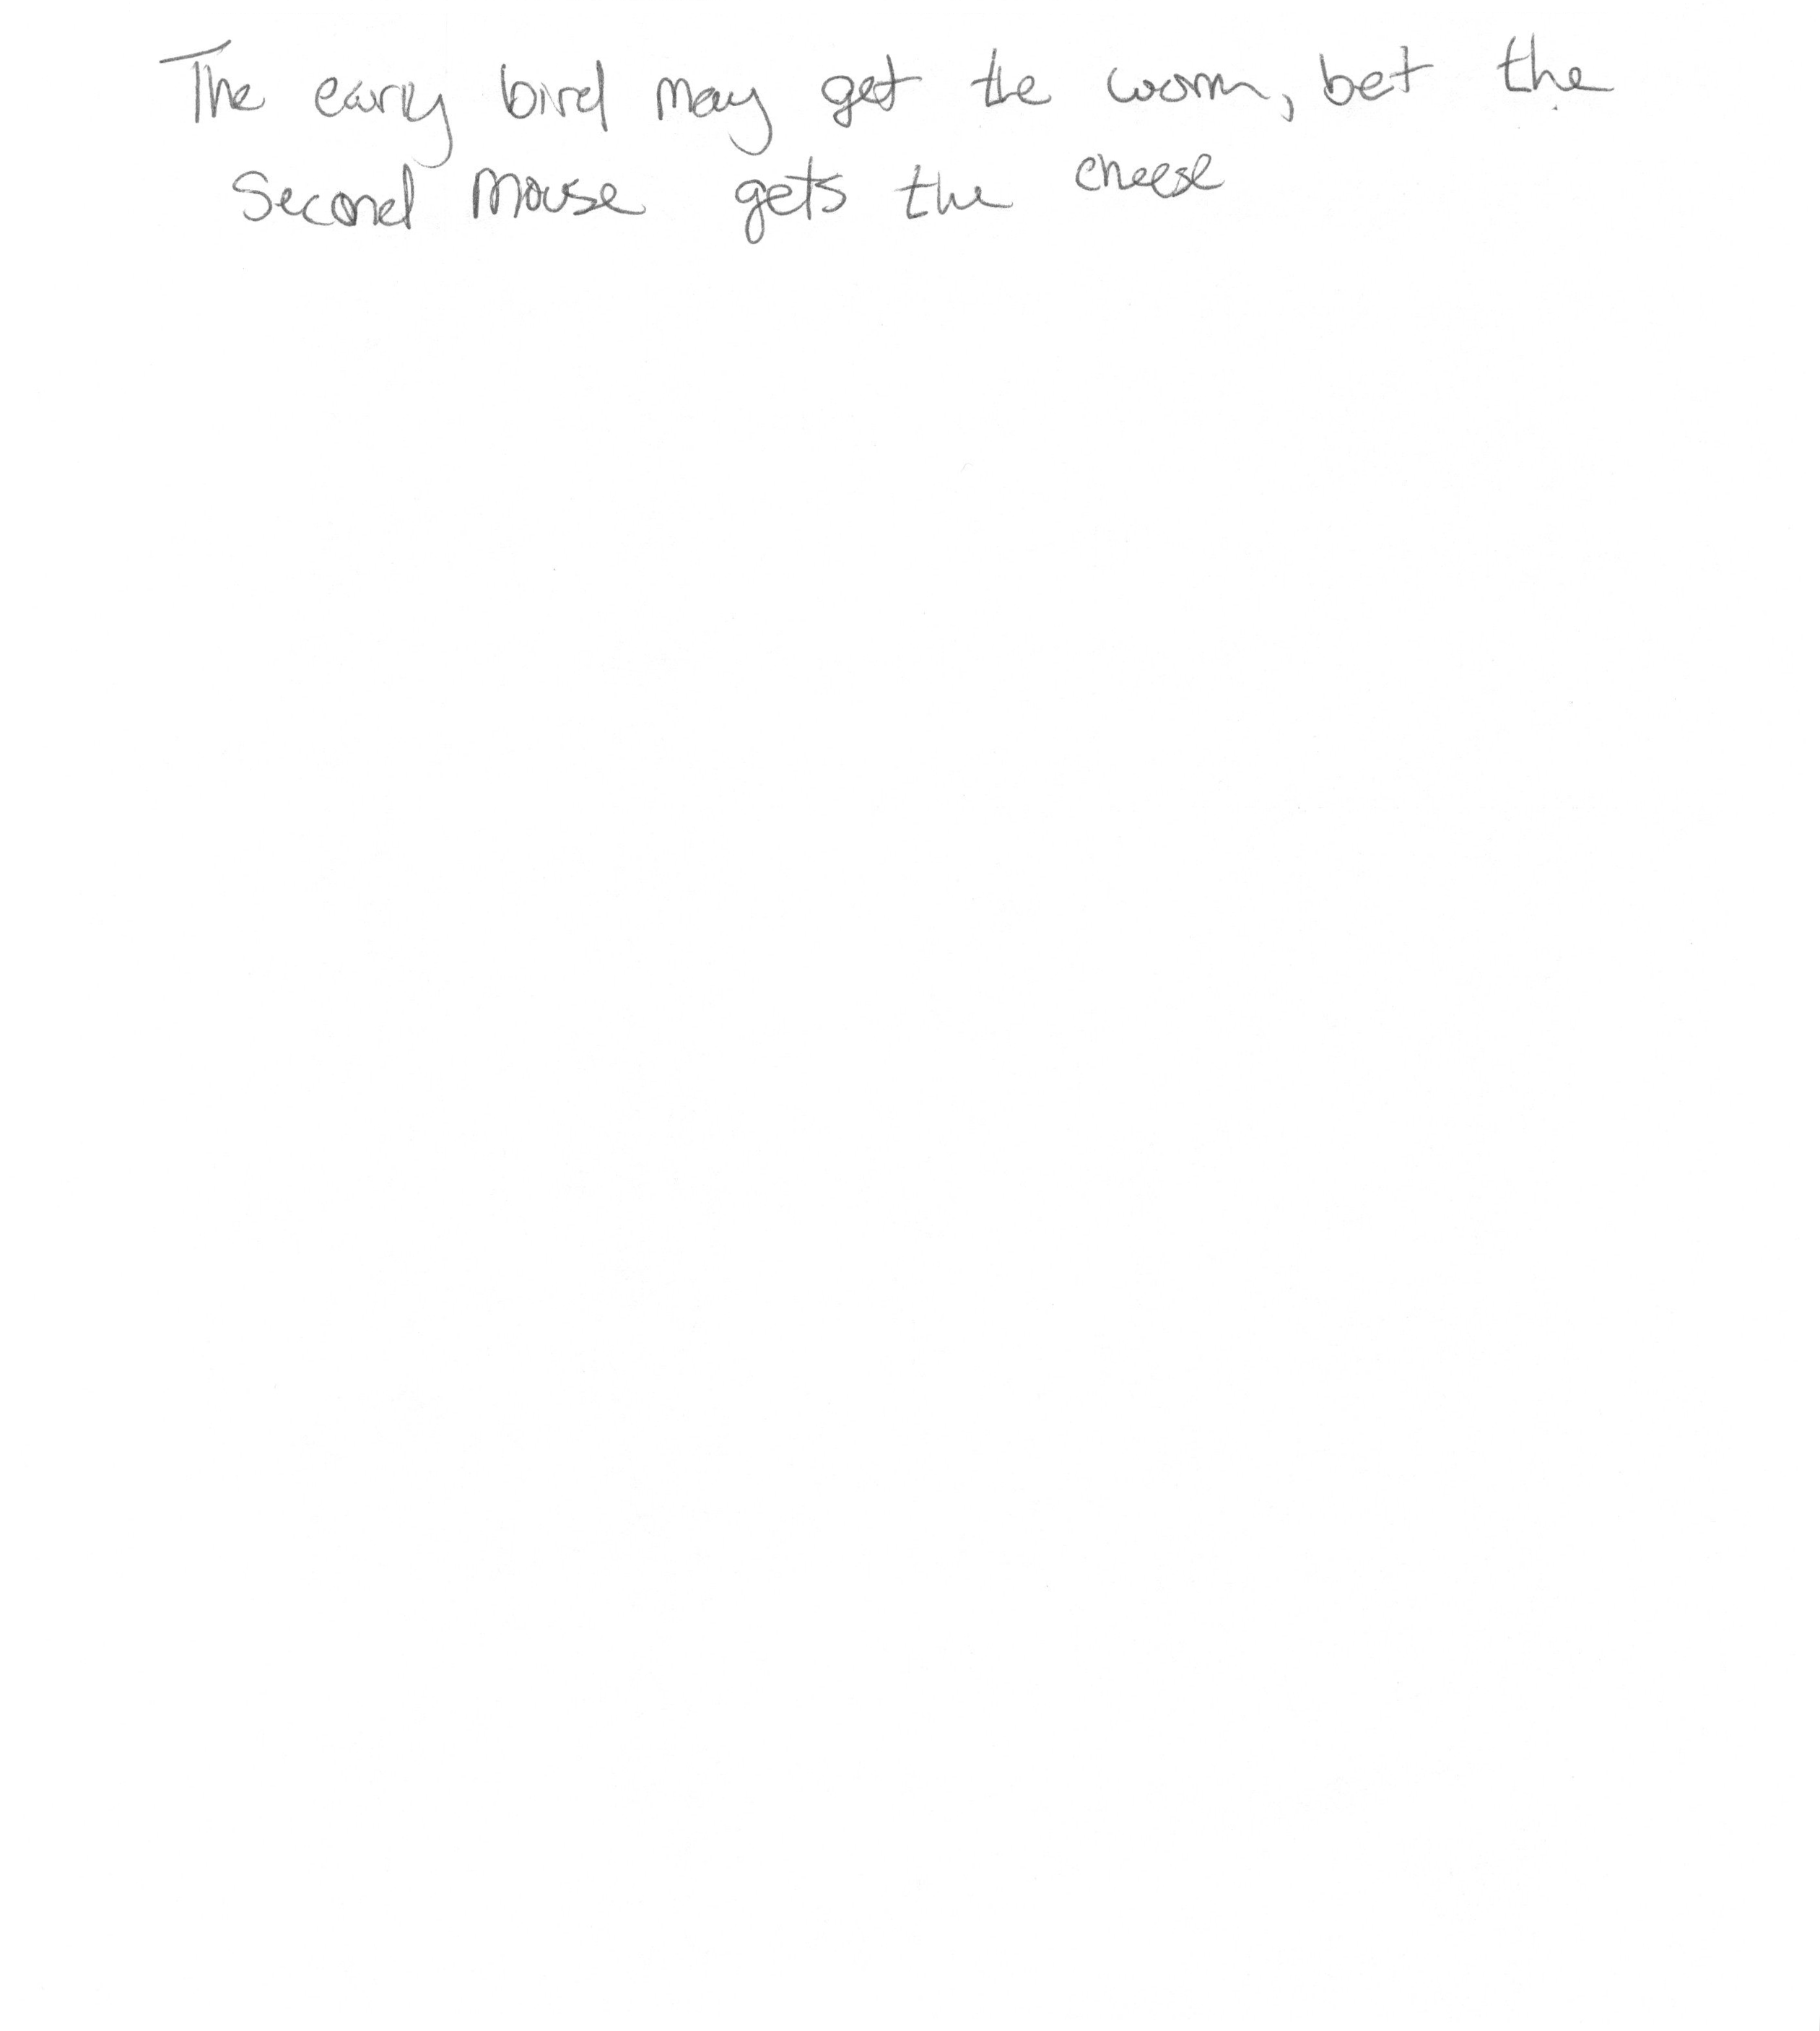 The early bird may get the worm, bet the
second mouse gets the cheese